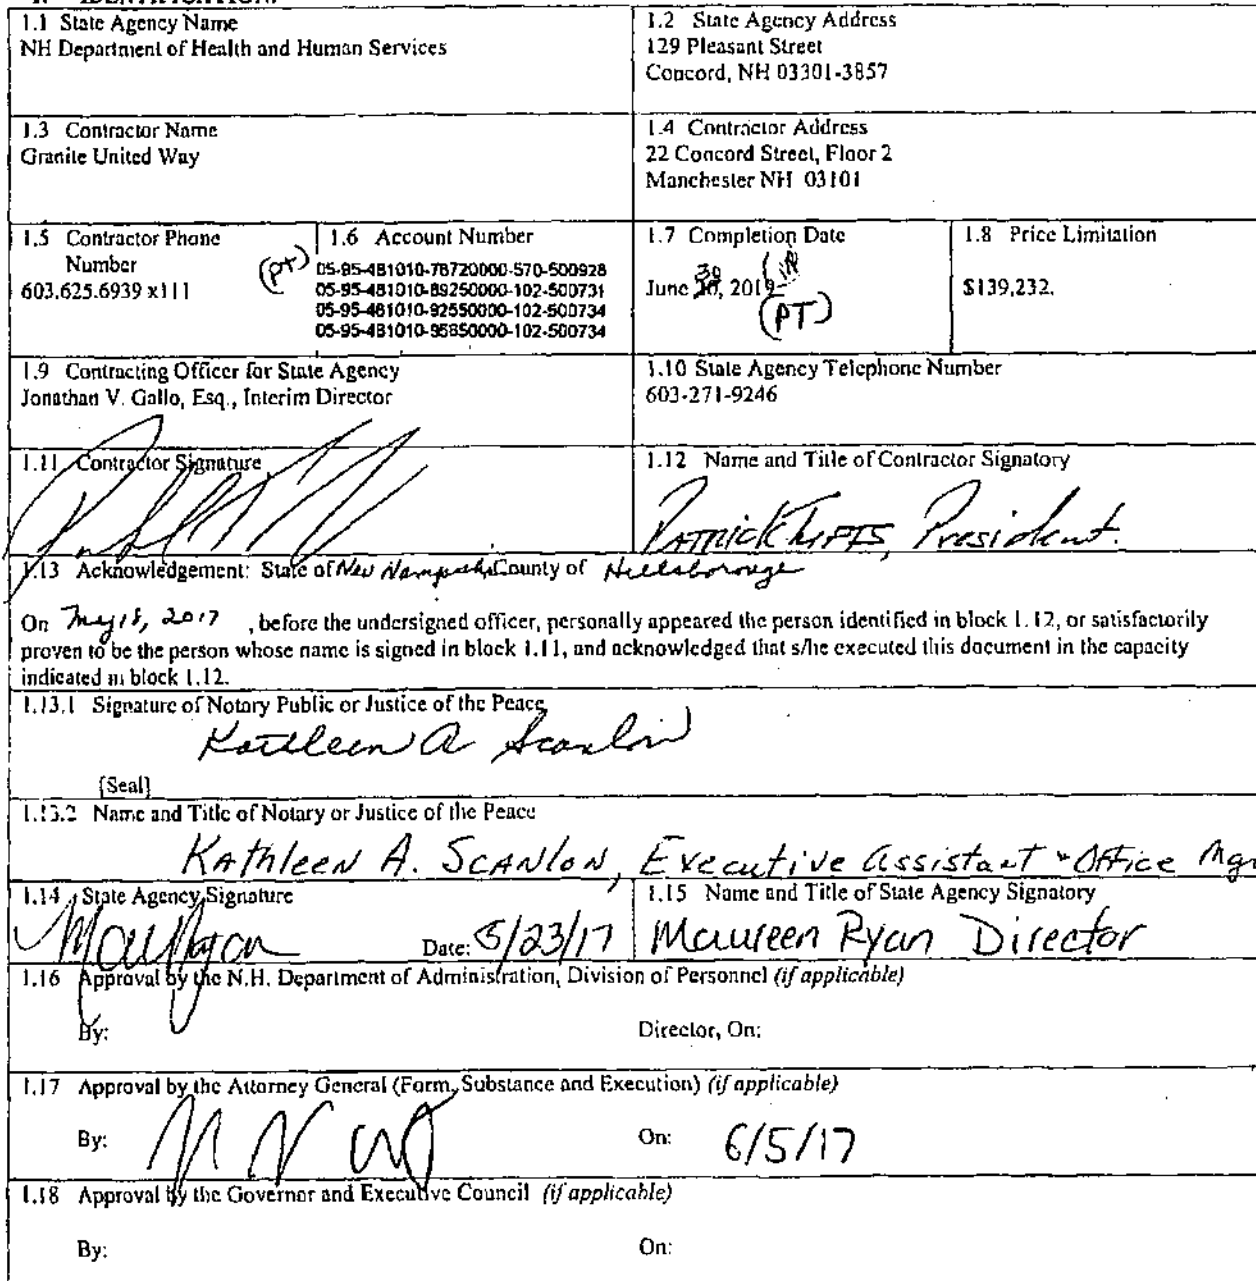 1.1 State Agency Name
NH Department of Health and Human Services
1.2 State Agency Address
129 Pleasant Street
Concord, NH 03301-3857
1.3 Contractor Name
Granite United Way
1.4 Contractor Address
22 Concord Street, Floor 2
Manchester NH 03101
1.5 Contractor Phone
Number
603.625.6939 x111
(PT)
1.6 Account Number
05-95-481010-78720000-570-500928
05-95-481010-89250000-102-500731
05-95-481010-92550000-102-500734
05-95-481010-95850000-102-500734
1.7 Completion Date
June 30, 2019
(PT)
1.8 Price Limitation
$139,232.
1.9 Contracting Officer for State Agency
Jonathan V. Gallo, Esq., Interim Director
1.10 State Agency Telephone Number
603-271-9246
1.11 Contractor Signature
1.12 Name and Title of Contractor Signatory
PATRICK TUFTS, President.
1.13 Acknowledgement: State of New Hampshire County of Hillsborough
On May 18, 2017 , before the undersigned officer, personally appeared the person identified in block 1.12, or satisfactorily
proven to be the person whose name is signed in block 1.11, and acknowledged that s/he executed this document in the capacity
indicated in block 1.12.
1.13.1 Signature of Notary Public or Justice of the Peace
Kathleen A Scanlon
[Seal]
1.13.2 Name and Title of Notary or Justice of the Peace
Kathleen A. Scanlon, Executive Assistant - Office Mgr
1.14 State Agency Signature
Date: 5/23/17
1.15 Name and Title of State Agency Signatory
Maureen Ryan Director
1.16 Approval by the N.H. Department of Administration, Division of Personnel (if applicable)
By:
Director, On:
1.17 Approval by the Attorney General (Form, Substance and Execution) (if applicable)
By:
On: 6/5/17
1.18 Approval by the Governor and Executive Council (if applicable)
By:
On: